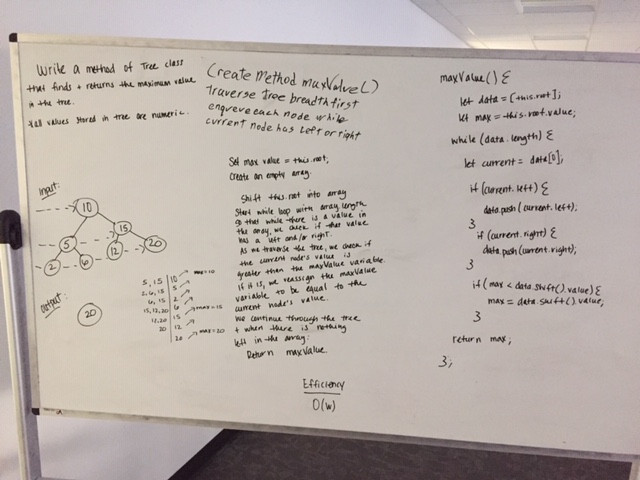 Write a method of Tree class
that finds + returns the maximum value
in the tree.
*all values stored in tree are numeric.
Input:
10
5
15
2
6
12
20
Output:
20
5, 15 | 10 max=10
2, 6, 15 | 5
6, 15 | 2
15, 12, 20 | 6 max=15
12, 20 | 15
20 | 12
20 max=20
Create Method maxValue()
Traverse Tree breadth first
enqueue each node while
current node has left or right
Set max value = this.root;
Create an empty array.
Shift this.root into array
Start while loop with array.length
so that while there is a value in
the array, we check if that value
has a left and/or right.
As we traverse the tree, we check if
the current node's value is
greater than the maxValue variable.
If it is, we reassign the maxValue
variable to be equal to the
current node's value.
We continue through the tree
+ when there is nothing
left in the array:
Return maxValue
Efficiency
O(w)
maxValue() {
let data = [this.root];
let max = this.root.value;
while (data.length) {
let current = data[0];
if (current.left) {
data.push(current.left);
}
if (current.right) {
data.push(current.right);
}
if (max < data.shift().value) {
max = data.shift().value;
}
return max;
};